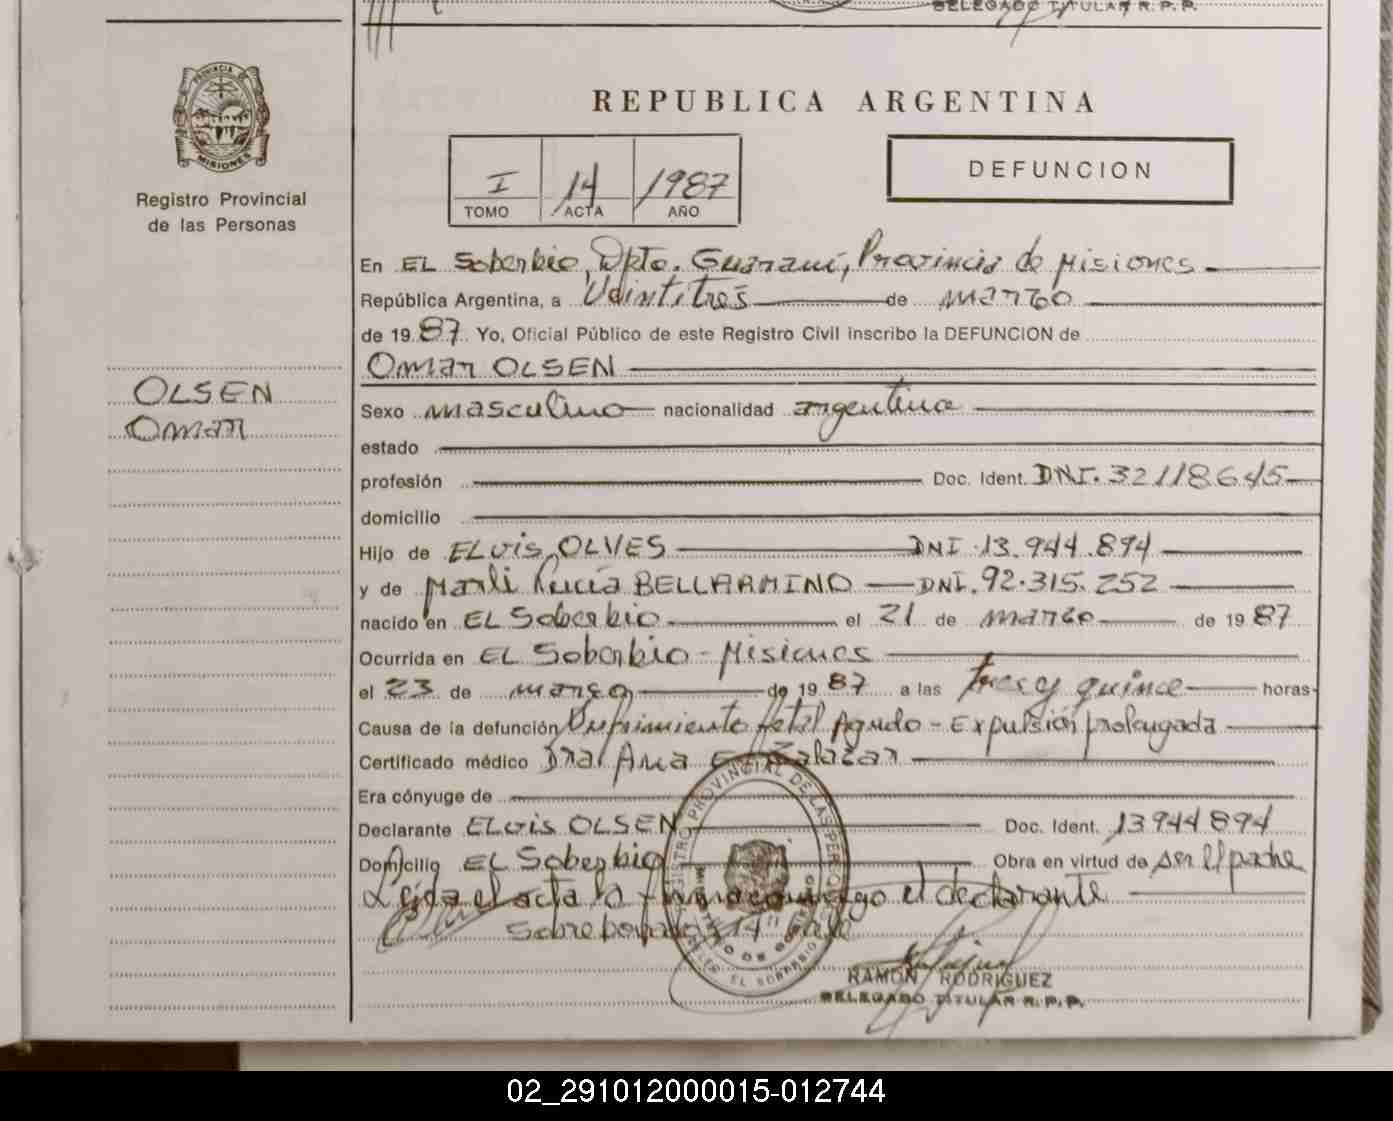 DELEGADO TITULAR R.P.P.
PROVINCIA DE
MISIONES
Registro Provincial
de las Personas
OLSEN
Omar
REPUBLICA ARGENTINA
I 14 1987
TOMO ACTA AÑO
DEFUNCION
En EL Soberbio, Dpto. Guaraní, Provincia de Misiones
República Argentina, a Veintitres de marzo
de 1987 Yo, Oficial Público de este Registro Civil inscribo la DEFUNCION de
Omar OLSEN
Sexo masculino nacionalidad argentina
estado
profesión Doc. Ident. DNI. 32118645
domicilio
Hijo de ELvis OLVES DNI 13.944.894
y de Marli Lucía BELLARMINO DNI. 92.315.252
nacido en EL Soberbio el 21 de marzo de 1987
Ocurrida en EL Soberbio - Misiones
el 23 de marzo de 1987 a las tres y quince horas
Causa de la defunción Sufrimiento fetal Agudo - Expulsión prolongada
Certificado médico Dra. Ana Zalazar
Era cónyuge de
Declarante ELvis OLSEN Doc. Ident. 13944894
Domicilio EL Soberbio Obra en virtud de ser el padre
Leída el acta la firma conmigo el declarante
Sobreborrado "14" Vale
REGISTRO PROVINCIAL DE LAS PERSONAS
MINISTERIO DE GOBIERNO
EL SOBERBIO
RAMON RODRIGUEZ
DELEGADO TITULAR R.P.P.
02_291012000015-012744